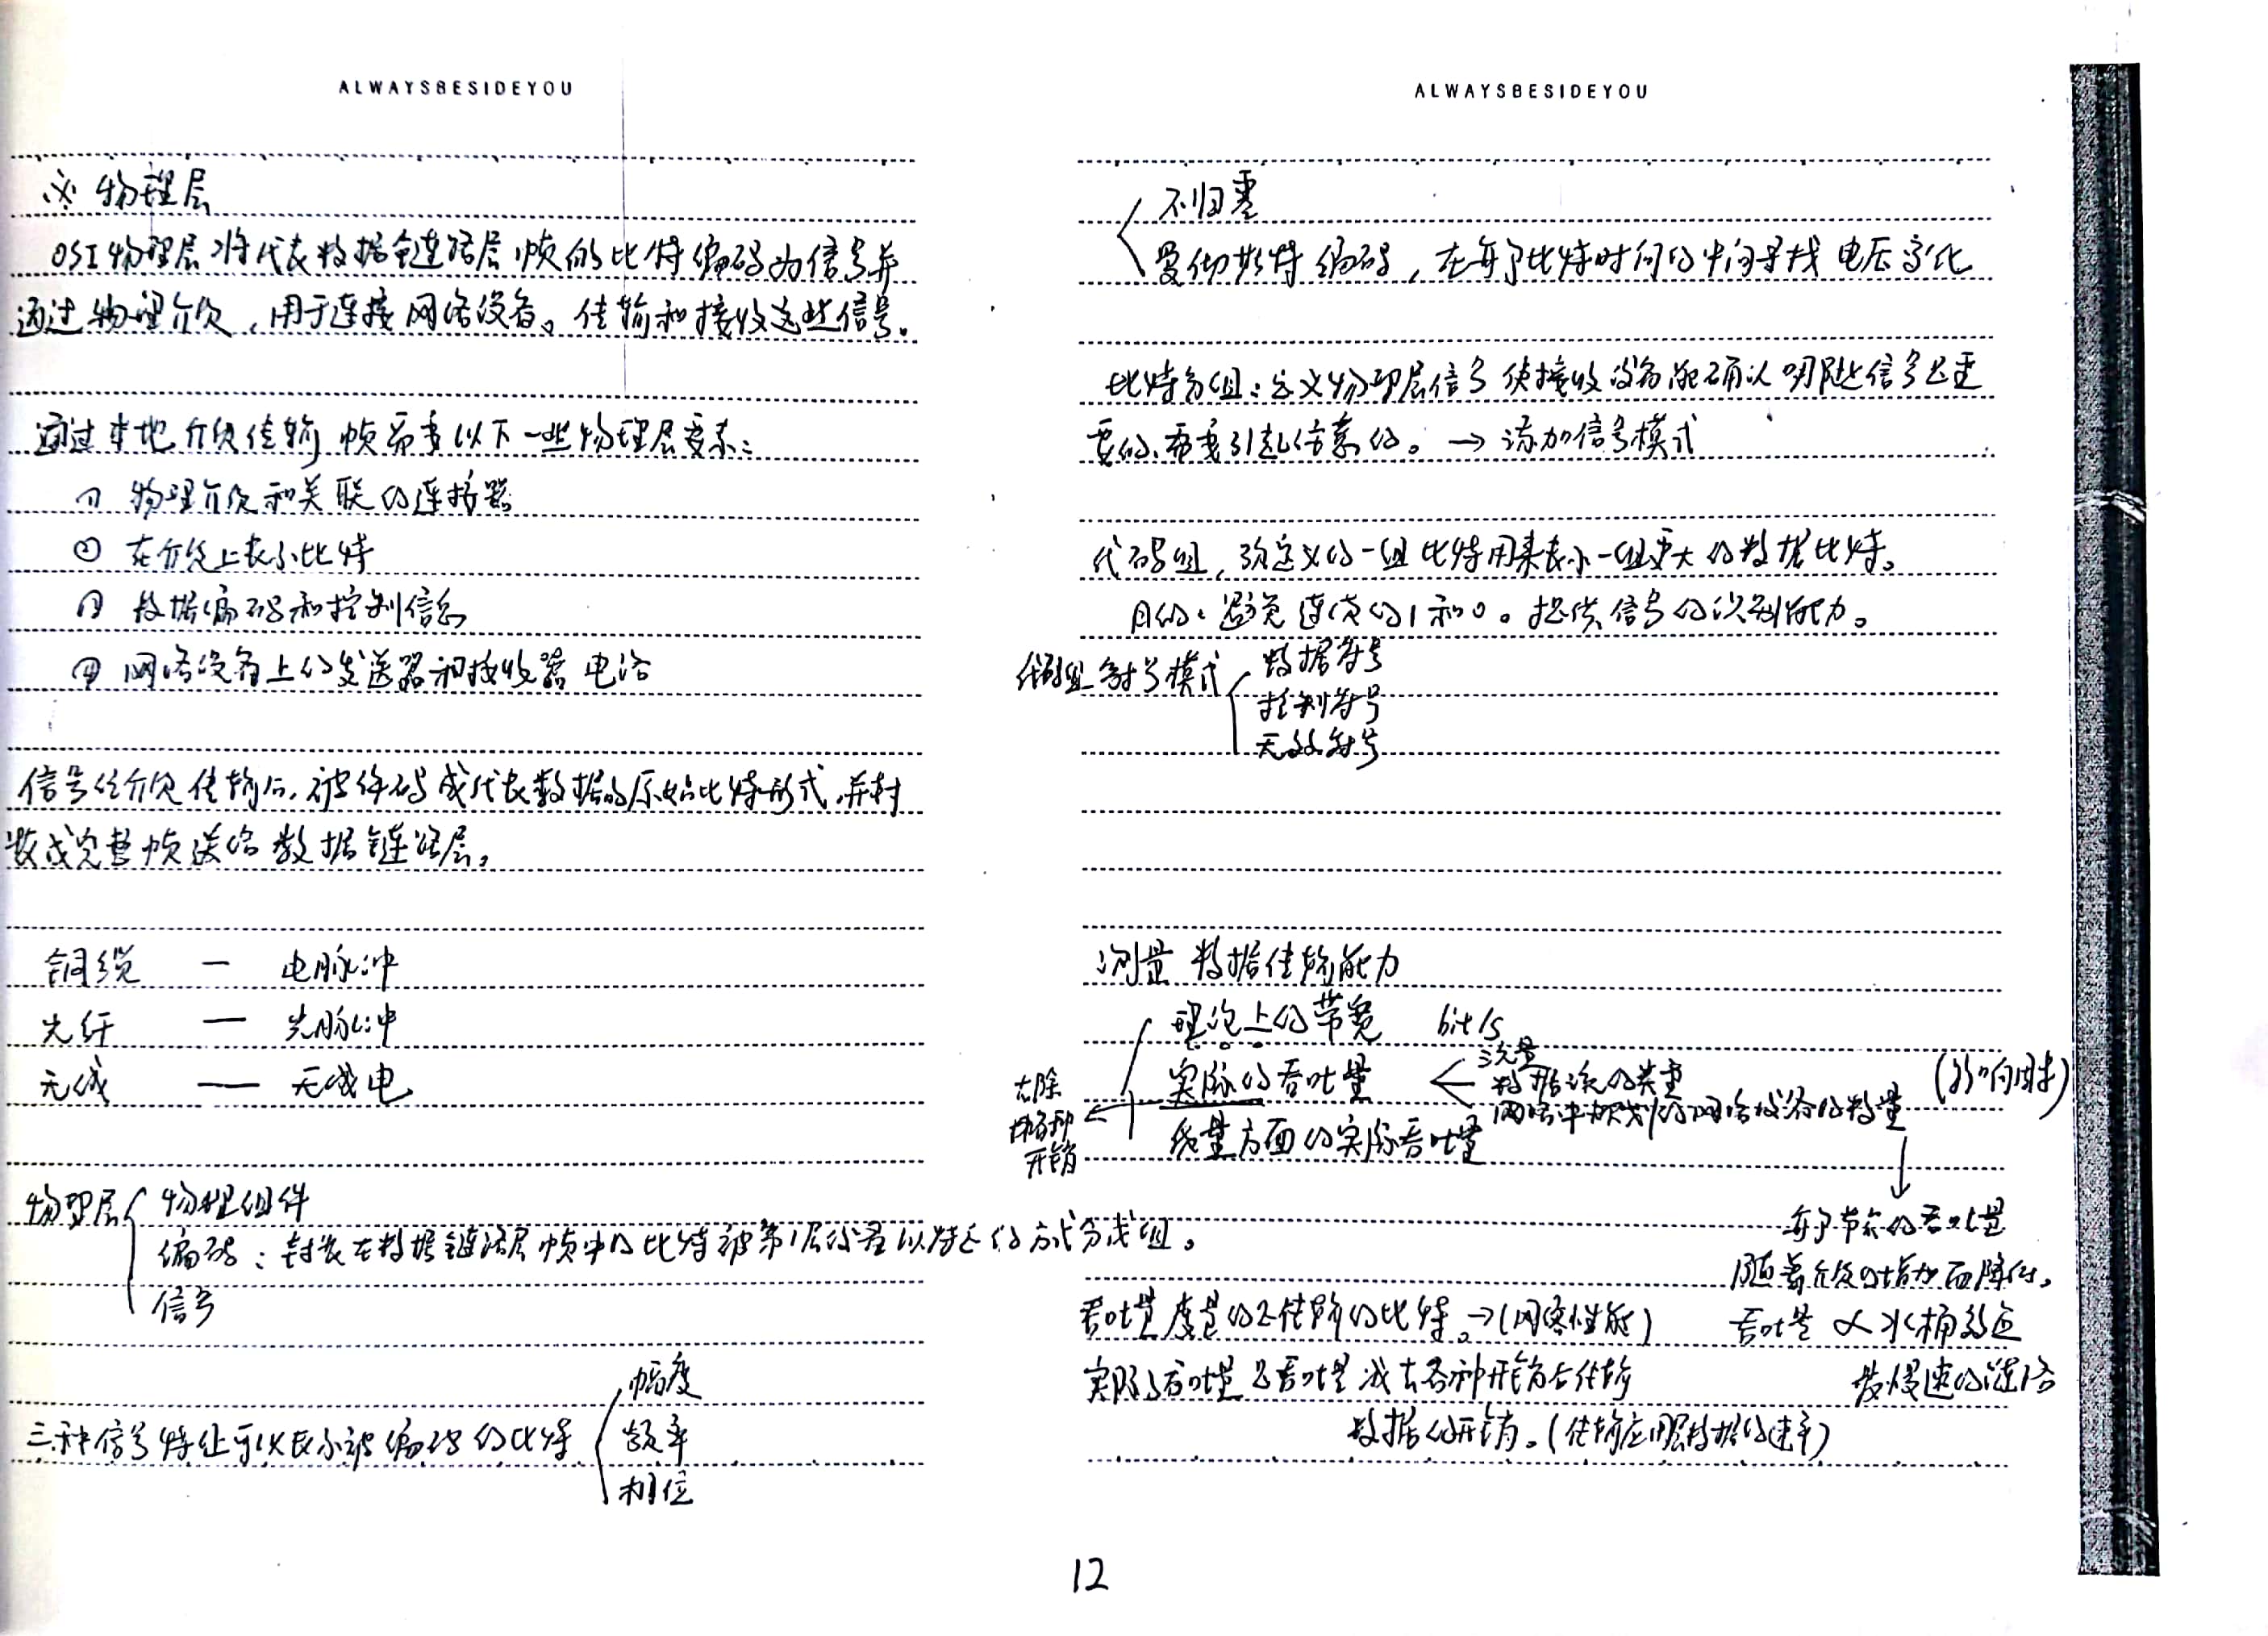 ALWAYSBESIDEYOU
※ 物理层
OSI物理层将代表数据链路层帧的比特编码为信号并
通过物理介质,用于连接网络设备。传输和接收这些信号。
通过本地介质传输帧需要以下一些物理层要素:
① 物理介质和关联的连接器
② 在介质上表示比特
③ 数据编码和控制信息
④ 网络设备上的发送器和接收器电路
信号经介质传输后,被解码成代表数据的原始比特形式,并封
装成完整帧送给数据链路层。
铜缆 — 电脉冲
光纤 — 光脉冲
无线 — 无线电
物理层
物理组件
编码:封装在数据链路层帧中的比特被第1层设备以特定的方式分成组。
信号
三种信号特征可以表示被编码的比特
幅度
频率
相位
ALWAYSBESIDEYOU
不归零
曼彻斯特编码,在每个比特时间的中间寻找电压变化
比特分组:定义物理层信号使接收设备能确认哪些信号是重
要的、需要引起注意的。→ 添加信号模式
代码组,预定义的一组比特用来表示一组更大的数据比特。
目的:避免连续的1和0。提供信号的识别能力。
代码组符号模式
数据符号
控制符号
无效符号
测量数据传输能力
理论上的带宽 bit/s
实际的吞吐量 ←
流量
数据流的类型
网络中规划的网络设备的数量
(影响因素)
质量方面的实际吞吐量
去除
各种
开销
每个节点的吞吐量
随着介质的增加而降低。
吞吐量度量的是传输的比特。→(网络性能)
吞吐量 ∝ 水桶效应
最慢速的链路
实际的吞吐量是吞吐量减去各种开销占传输
数据的开销。(传输应用层数据的速率)
12